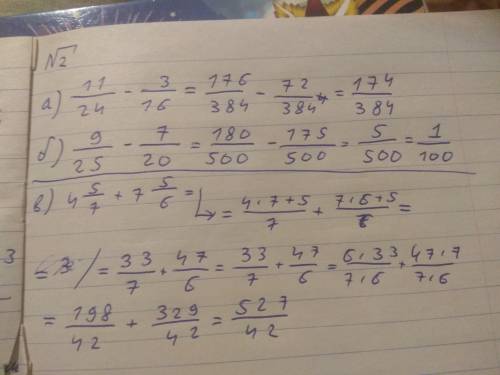 √2
а) 11/24 - 3/16 = 176/384 - 72/384 = 174/384
б) 9/25 - 7/20 = 180/500 - 175/500 = 5/500 = 1/100
в) 4 5/7 + 7 5/6 = ↳ = 4·7+5/7 + 7·6+5/6 =
= 33/7 + 47/6 = 33/7 + 47/6 = 6·33/7·6 + 47·7/7·6
= 198/42 + 329/42 = 527/42
3